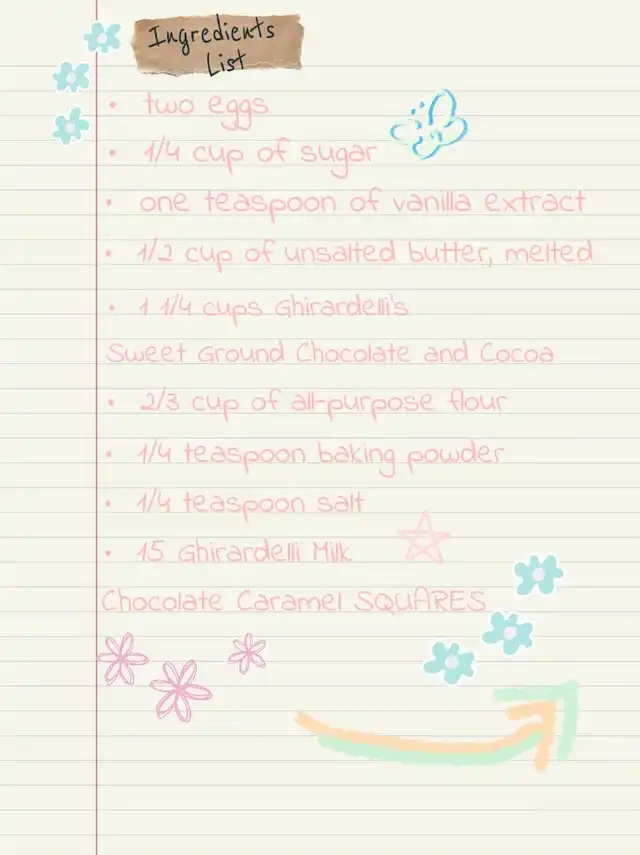 Ingredients
List
• two eggs
• 1/4 cup of sugar
• one teaspoon of vanilla extract
• 1/2 cup of unsalted butter, melted
• 1 1/4 cups Ghirardelli's
Sweet Ground Chocolate and Cocoa
• 2/3 cup of all-purpose flour
• 1/4 teaspoon baking powder
• 1/4 teaspoon salt
• 15 Ghirardelli Milk
Chocolate Caramel SQUARES